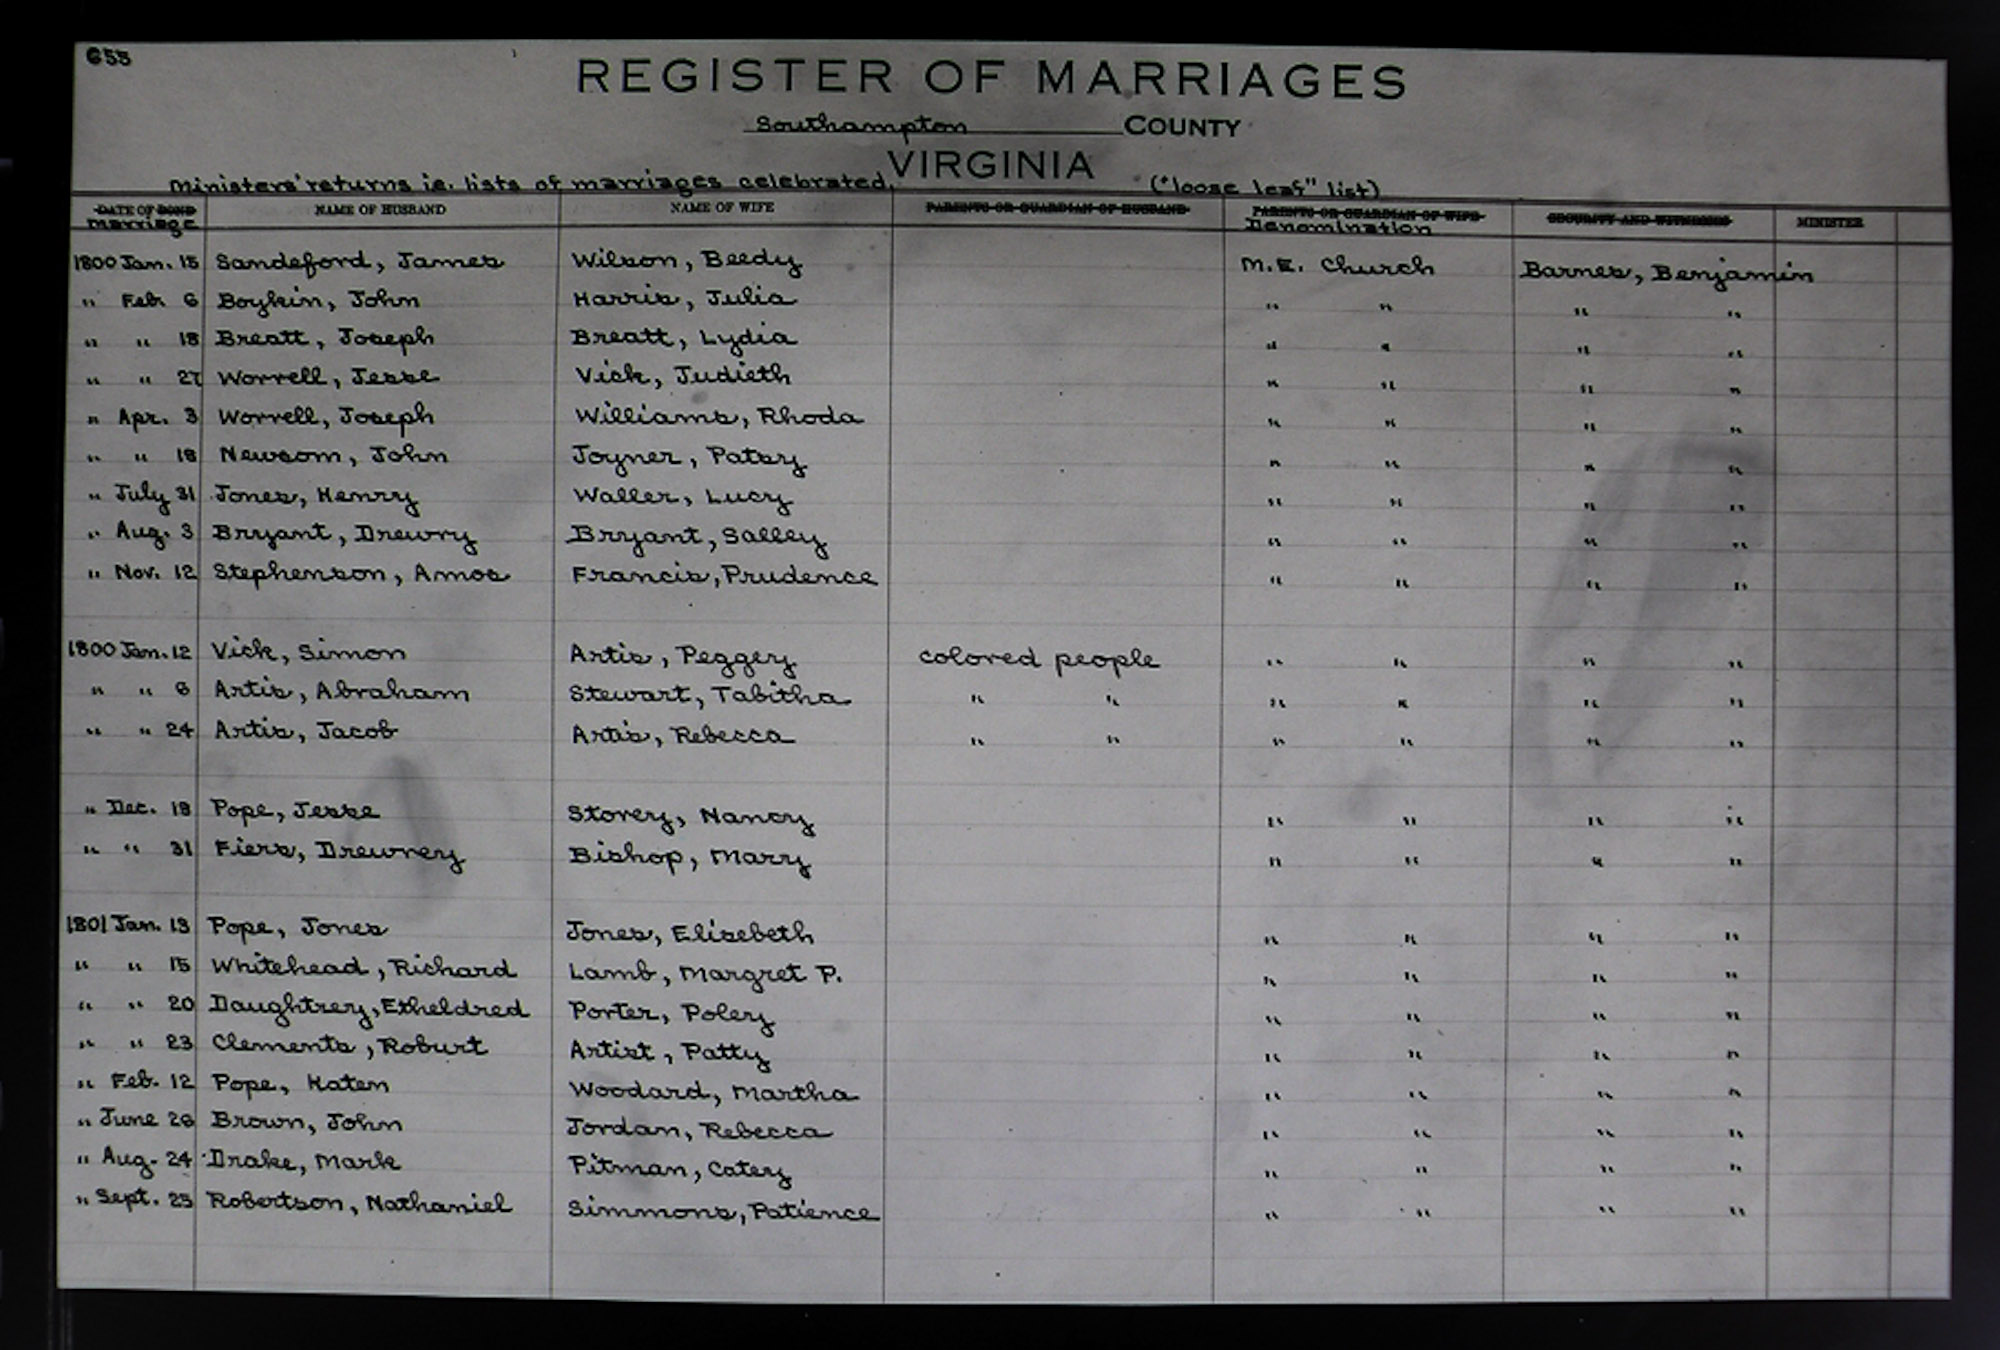 653
REGISTER OF MARRIAGES
Southampton COUNTY
VIRGINIA
Ministers' returns ie. lists of marriages celebrated, ("loose leaf" list)
DATE OF BOND NAME OF HUSBAND NAME OF WIFE PARENTS OR GUARDIAN OF HUSBAND PARENTS OR GUARDIAN OF WIFE SECURITY AND WITNESSES MINISTER
Marriage Denomination
1800 Jan. 15 Sandeford, James Wilson, Beedy M.E. Church Barnes, Benjamin
" Feb. 6 Boykin, John Harris, Julia " " " "
" " 18 Breatt, Joseph Breatt, Lydia " " " "
" " 27 Worrell, Jesse Vick, Judieth " " " "
" Apr. 3 Worrell, Joseph Williams, Rhoda " " " "
" " 18 Newsom, John Joyner, Patsy " " " "
" July 31 Jones, Henry Waller, Lucy " " " "
" Aug. 3 Bryant, Drewry Bryant, Salley " " " "
" Nov. 12 Stephenson, Amos Francis, Prudence " " " "
1800 Jan. 12 Vick, Simon Artis, Peggey colored people " " " "
" " 6 Artis, Abraham Stewart, Tabitha " " " " " "
" " 24 Artis, Jacob Artis, Rebecca " " " " " "
" Dec. 18 Pope, Jesse Storey, Nancy " " " "
" " 31 Fiers, Drewrey Bishop, Marry " " " "
1801 Jan. 13 Pope, Jones Jones, Elisebeth " " " "
" " 15 Whitehead, Richard Lamb, Margret P. " " " "
" " 20 Daughtrey, Etheldred Porter, Poley " " " "
" " 23 Clements, Roburt Artist, Patty " " " "
" Feb. 12 Pope, Katem Woodard, Martha " " " "
" June 28 Brown, John Jordan, Rebecca " " " "
" Aug. 24 Drake, Mark Pitman, Catey " " " "
" Sept. 25 Robertson, Nathaniel Simmons, Patience " " " "